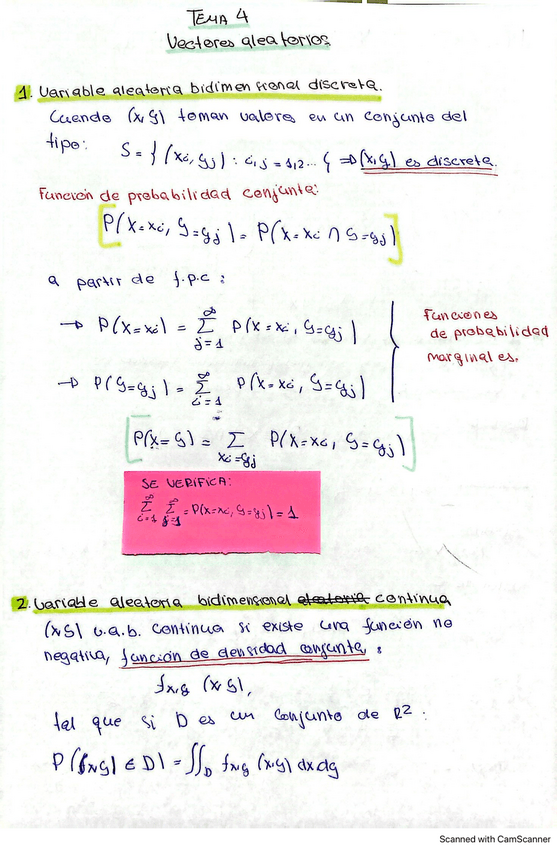 TEMA 4
Vectores aleatorios
1. Variable aleatoria bidimensional discreta.
Cuando (x,y) toman valores en un conjunto del
tipo: S = { (xi, yj) : i,j = 1,2... } ⇒ (x,y) es discreta.
Función de probabilidad conjunta:
P(X=xi, Y=yj) = P(X=xi ∩ Y=yj)
a partir de f.p.c :
→ P(X=xi) = ∑ j=1 ∞ P(X=xi, Y=yj)
→ P(Y=yj) = ∑ i=1 ∞ P(X=xi, Y=yj)
Funciones
de probabilidad
marginales.
P(X=Y) = ∑ xi=yj P(X=xi, Y=yj)
SE VERIFICA:
∑ i=1 ∞ ∑ j=1 ∞ = P(X=xi, Y=yj) = 1
2. Variable aleatoria bidimensional aleatoria continua
(x,y) v.a.b. continua si existe una función no
negativa, función de densidad conjunta :
fx,y (x,y),
tal que si D es un conjunto de R² :
P((x,y) ∈ D) = ∬D fx,y (x,y) dx dy
Scanned with CamScanner